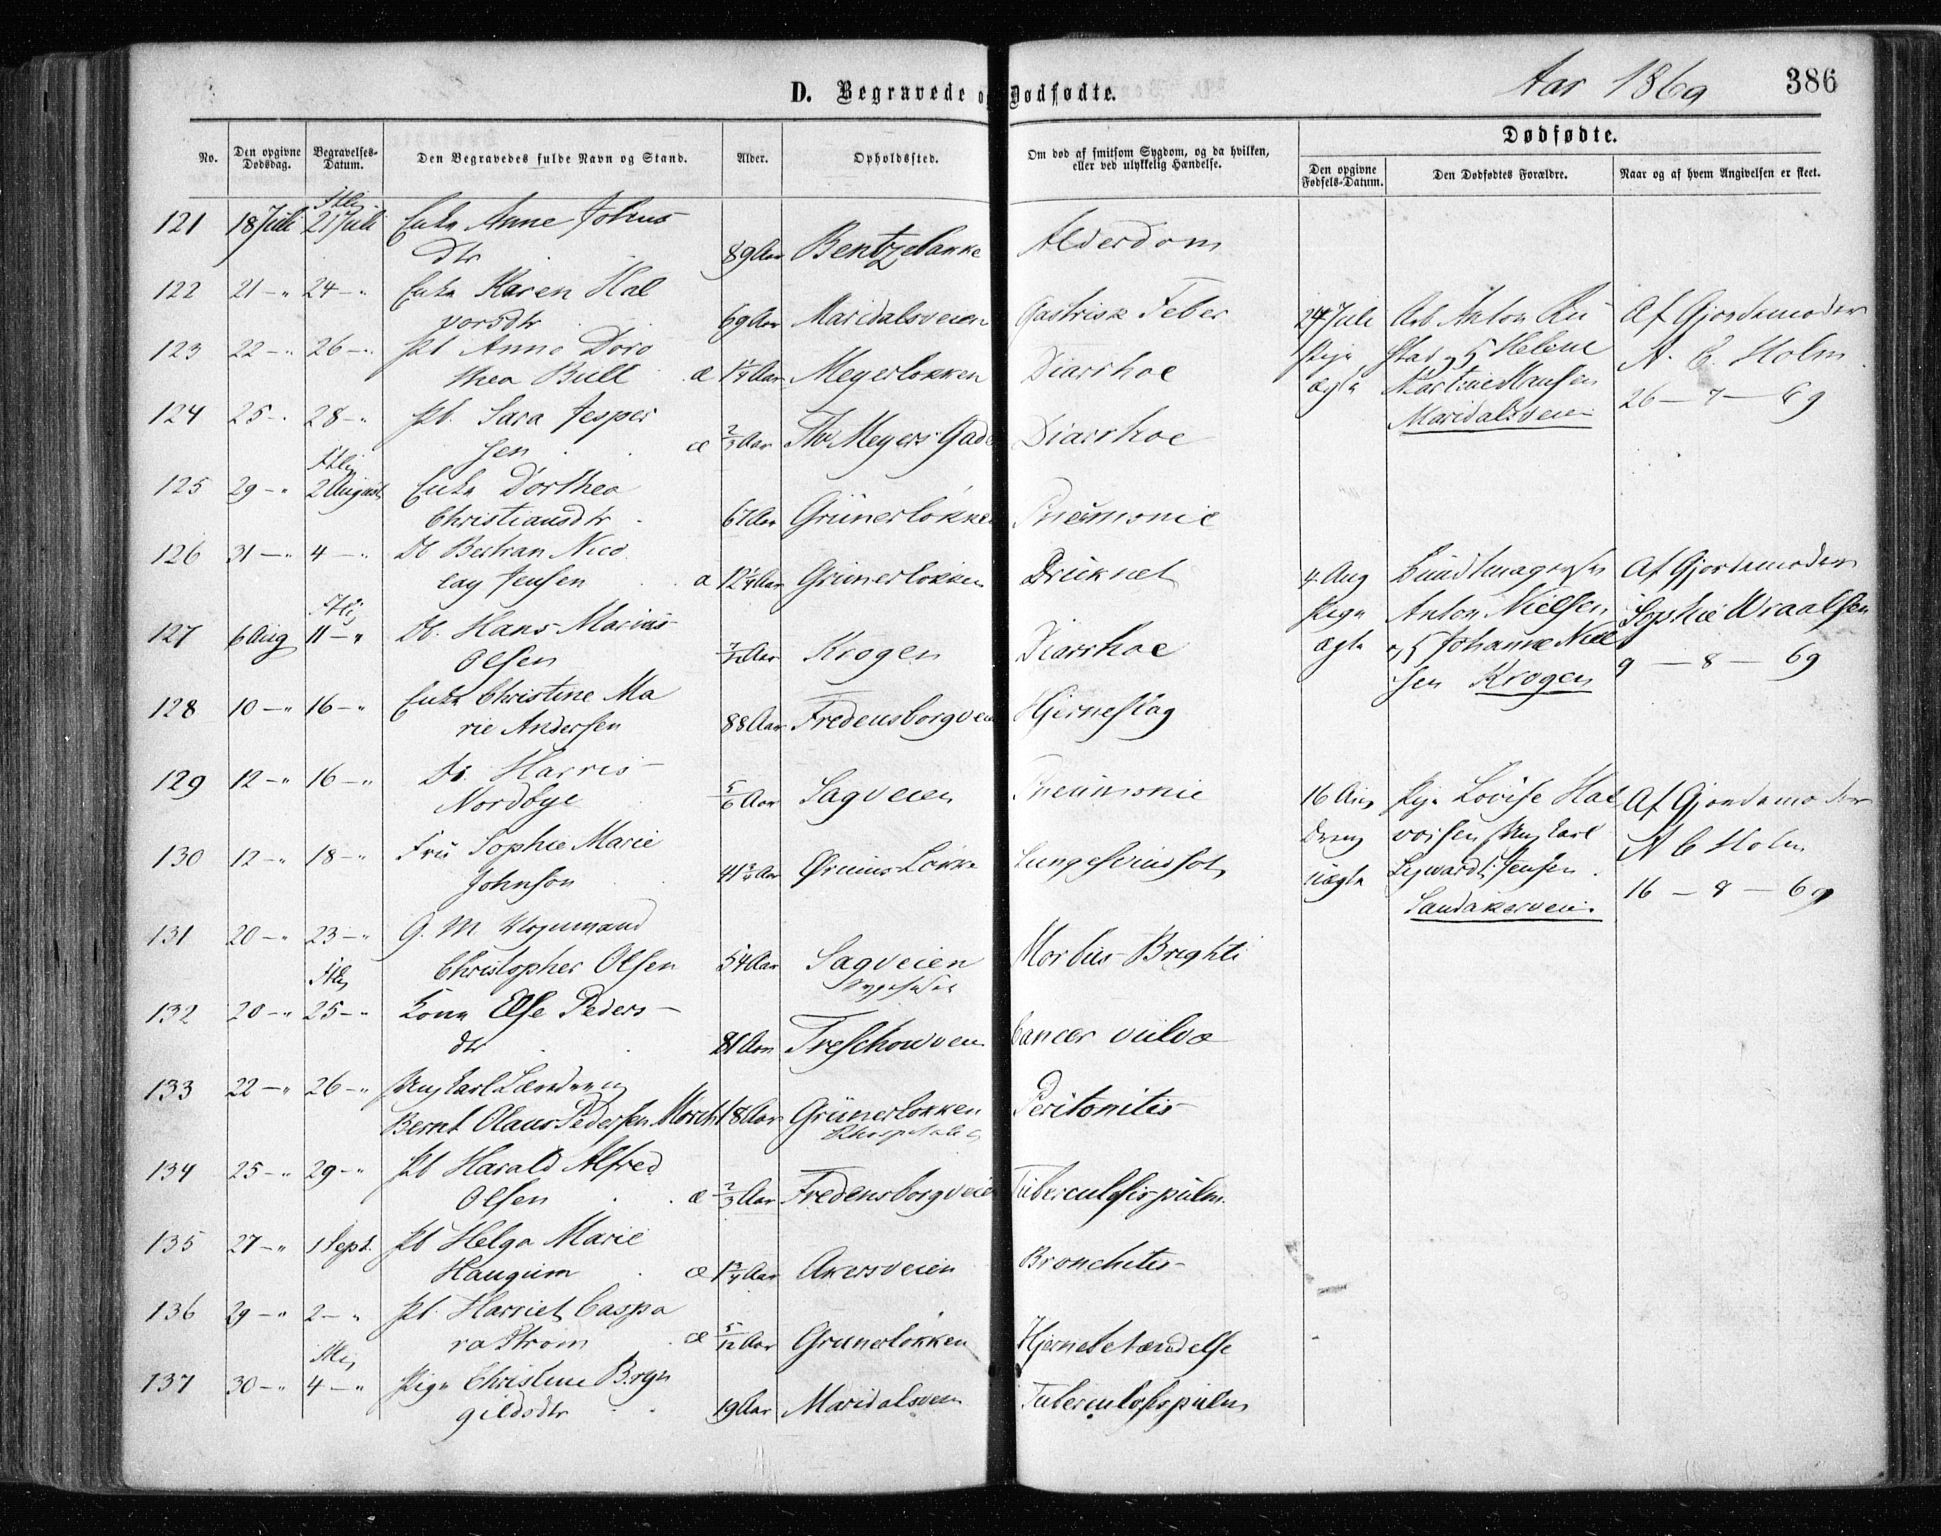 D. Begravede og Dødfødte.
Aar 1869
386
No.
Den opgivne Dødsdag.
Begravelses-Datum.
Den Begravedes fulde Navn og Stand.
Alder.
Opholdssted.
Om død af smitsom Sygdom, og da hvilken, eller ved ulykkelig Hændelse.
Dødfødte.
Den opgivne Fødsels-Datum.
Den Dødfødtes Forældre.
Naar og af hvem Angivelsen er skeet.
121 18 Juli 21 Juli Enke Anne Johns
dtr 89 Aar Bentzebakke Alderdom
122 21 -"- 24 -"- Enke Karen Hal
vorsdtr 69 Aar Maridalsveien Gastrisk Feber
123 22 -"- 26 -"- Pb Anne Doro
thea Bull æ 1 1/4 Aar Meyerløkken Diarrhoe
124 25 -"- 28 -"- Pb. Sara Jesper
sen æ 2/3 Aar Th Meyers Gade Diarrhoe
125 29 -"- 2 August Enke Dorthea
Christiansdtr 67 Aar Grünerløkken Pneumonie
126 31 -"- 4 -"- Db Bertran Nico
lay Jensen æ 12 1/4 Aar Grünerløkken Druknet
127 6 Aug 11 -"- Db. Hans Marius
Olsen Aar Krogen Diarrhoe
128 10 -"- 16 -"- Enke Christine Ma
rie Andersen 88 Aar Fredensborgveien Hjerneslag
129 12 -"- 16 -"- Db. Harris
Nordbye 5/6 Aar Sagveien Pneumonie
130 12 -"- 18 -"- Fru Sophie Marie
Johnson 41 3/4 Aar Ørumsløkke Lungesvindsot
131 20 -"- 23 -"- G. M.
Christopher Olsen 54 Aar Sagveien Morbus Brighti
132 20 -"- 25 -"- Kone Else Peders
dtr 81 Aar Treschowveien Cancer vulva
133 22 -"- 26 -"- Ungkarl
Bernt Olaus Pedersen Morch 18 Aar Grünerløkken Peritonitis
134 25 -"- 29 -"- Pb Harald Alfred
Olsen æ 2/3 Aar Fredensborgveien Tuberculosis pulm.
135 27 -"- 1 Sept. Pb Helga Marie
Haugum æ 1 3/4 Aar Akersveien Bronchitis
136 29 -"- 2 -"- Pb. Harriet Caspa
ra Strøm æ 5/12 Aar Grunerløkken Hjernebetændelse
137 30 -"- 4 -"- Pige Christine Bryn
gildsdtr 19 Aar Maridalsveien Tuberculosis pulm
24 Juli Arb Anton Ru Af Gjordemoder
Pige stad og H Helene A. C. Holm
ægte Martine Hansen 26 - 7 - 69
Maridalsveien
4 Aug Bundtmager Af Gjordemoder
Pige Anton Nielsen Sophie Wraalsen
ægte og H Johanne Niel 9 - 8 - 69
sen Krogen
16 Aug Pige Lovise Hal Af Gjordemoder
Dreng vorsen Ungkarl A C Holm
uægte Sigvardt Jensen 16 - 8 - 69
Sandakerveien